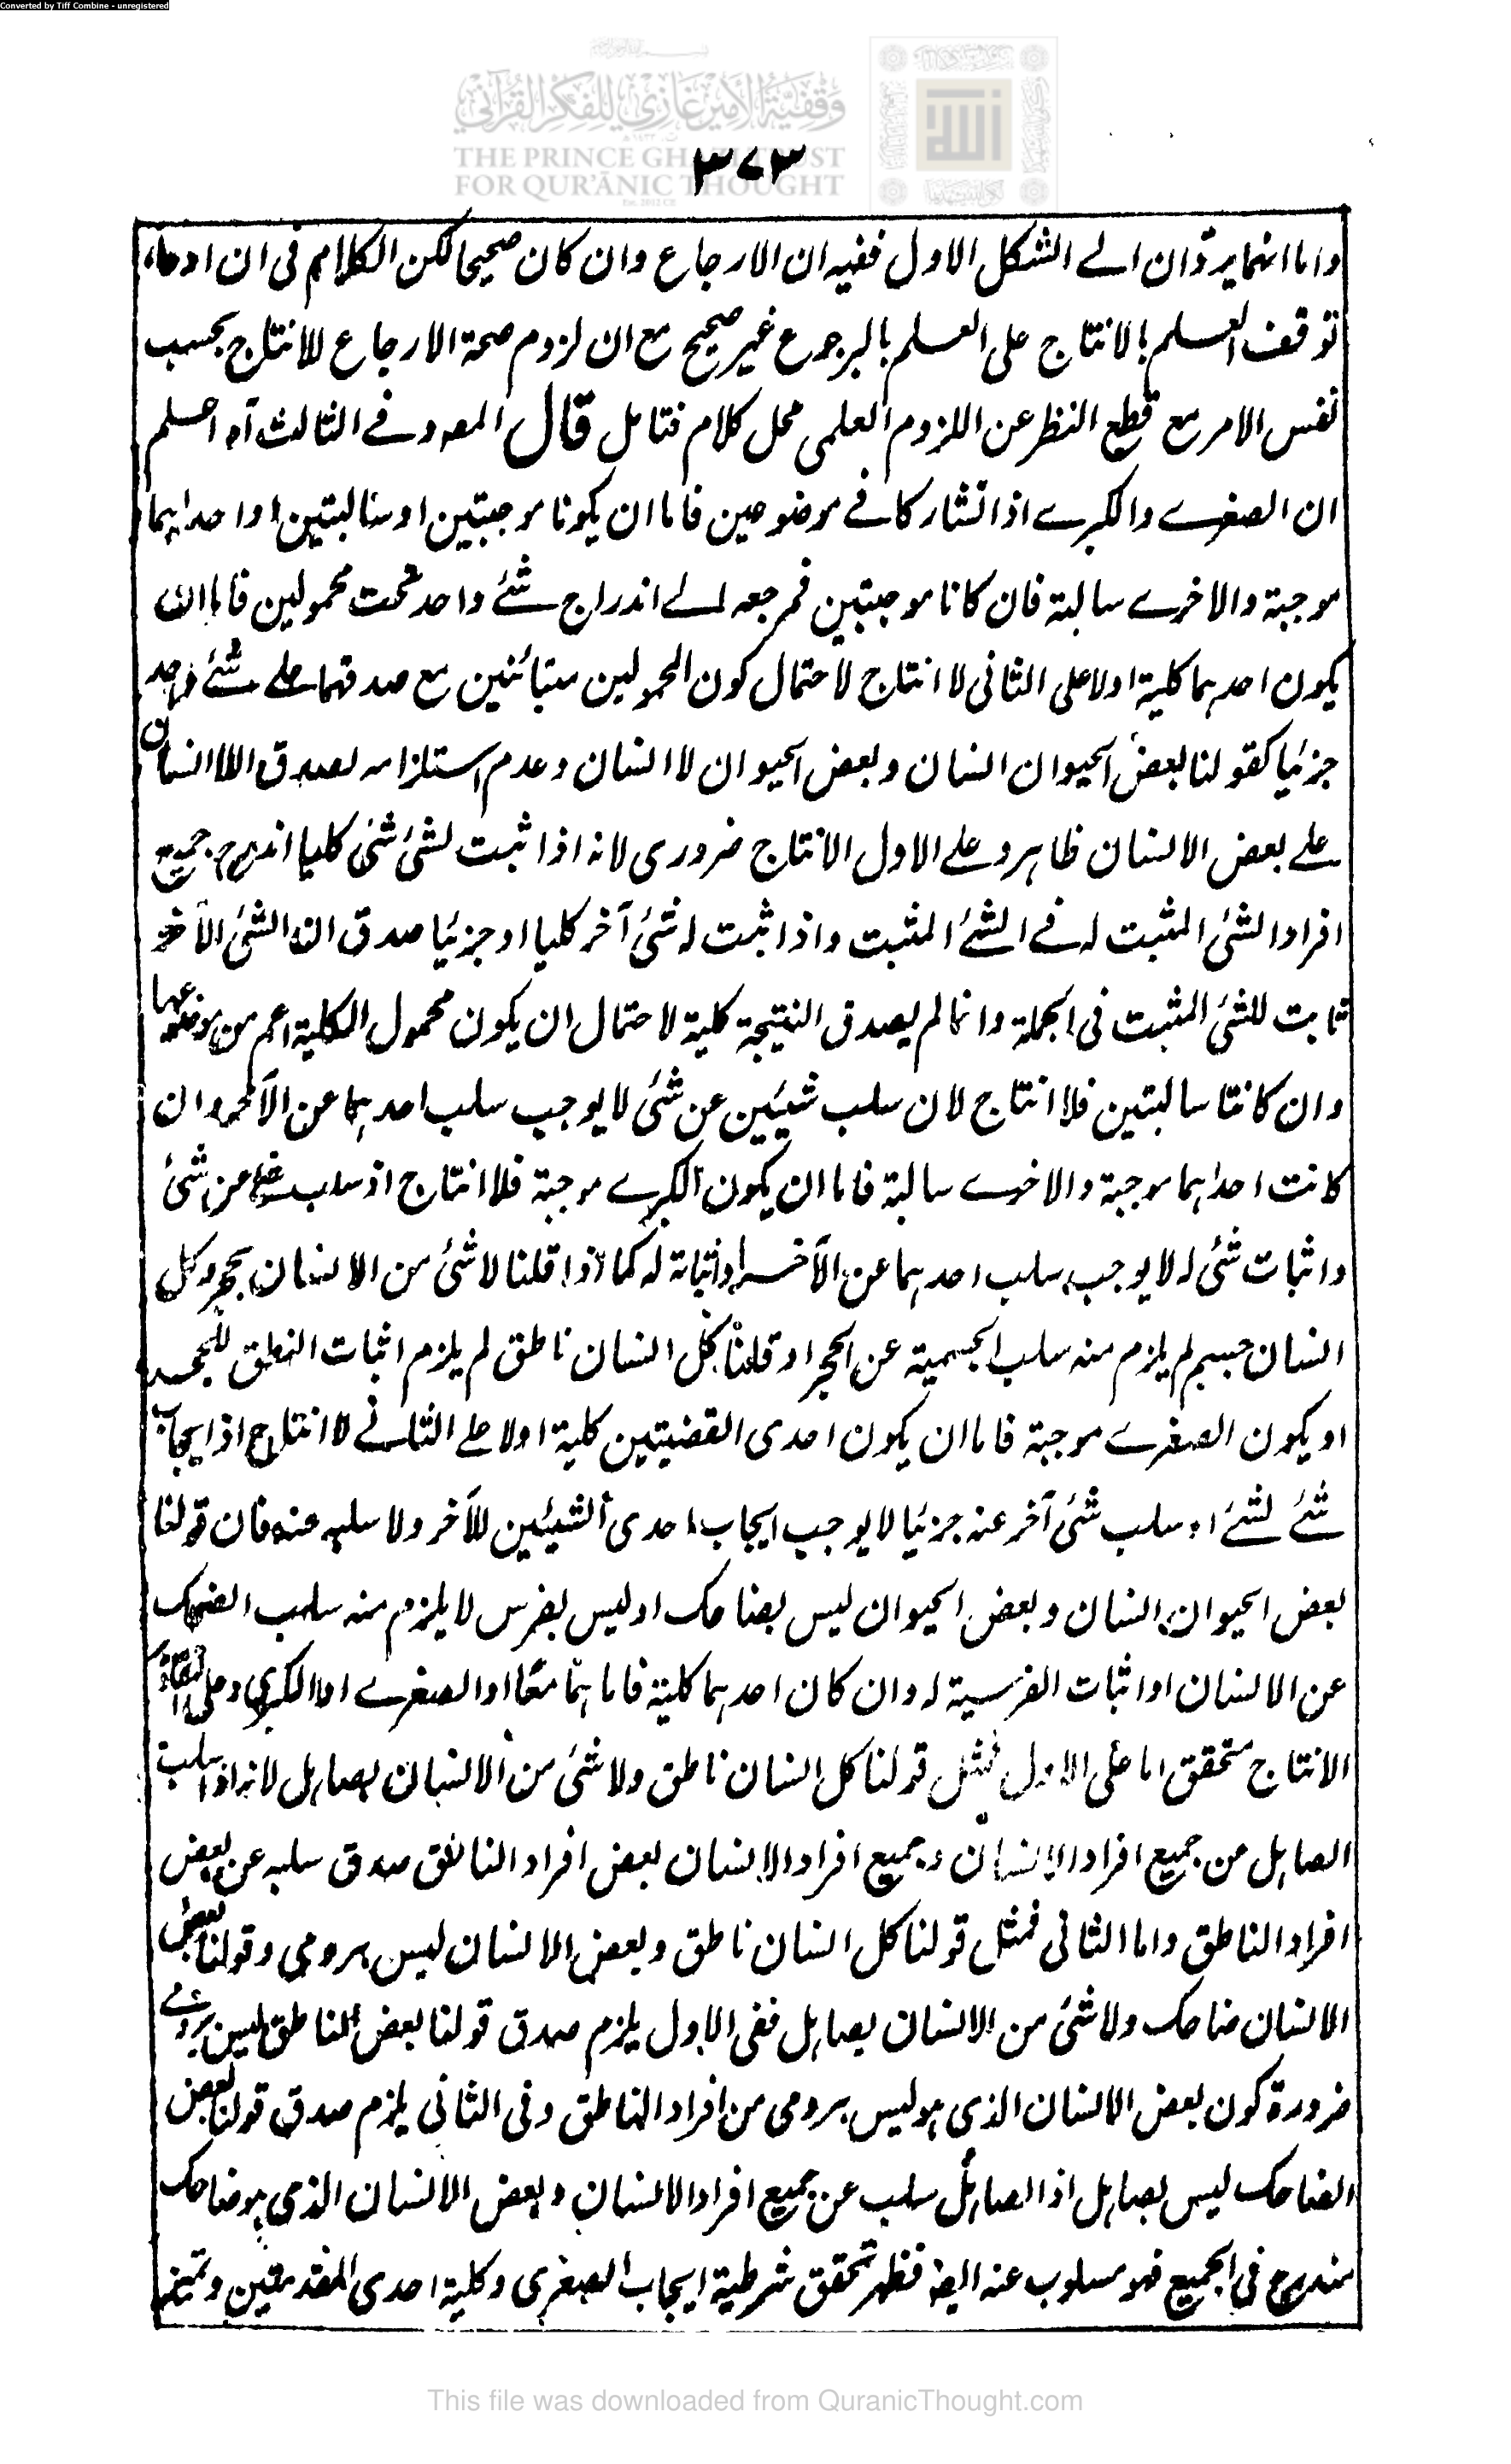 Converted by Tiff Combine - unregistered
وقفية الأمير غازي للفكر القرآني
THE PRINCE GHAZI TRUST
FOR QUR'ĀNIC THOUGHT
٣٧٣
واما انهما يردان الى الشكل الاول ففيه ان الارجاع وان كان صحيحا لكن الكلام فى ان ادعاء
توقف العلم بالانتاج على العلم بالرجوع غير صحيح مع ان لزوم صحة الارجاع للانتاج بحسب
نفس الامر مع قطع النظر عن اللزوم العلمى محل كلام فتامل قال المصـ وفى الثالث آه اعلم
ان الصغرى والكبرى اذا تشاركا فى موضوعين فاما ان يكونا موجبتين او سالبتين او احداهما
موجبة والاخرى سالبة فان كانا موجبتين فمرجعه الى اندراج شئ واحد تحت محمولين فاما ان
يكون احدهما كلية او لا على الثانى لا انتاج لاحتمال كون المحمولين متبائنين مع صدقهما على شئ واحد
جزئيا كقولنا بعض الحيوان انسان وبعض الحيوان لا انسان وعدم استلزامه لصدق اللا انسان
على بعض الانسان ظاهر وعلى الاول الانتاج ضرورى لانه اذا ثبت لشئ شئ كليا اندرج جميع
افراد الشئ المثبت له فى الشئ المثبت واذا ثبت له شئ آخر كليا او جزئيا صدق ان الشئ الآخر
ثابت للشئ المثبت فى الجملة وانما لم يصدق النتيجة كلية لاحتمال ان يكون محمول الكلية اعم من موضوعها
وان كانتا سالبتين فلا انتاج لان سلب شيئين عن شئ لا يوجب سلب احدهما عن الآخر وان
كانت احداهما موجبة والاخرى سالبة فاما ان يكون الكبرى موجبة فلا انتاج اذ سلب شئ عن شئ
واثبات شئ له لا يوجب سلب احدهما عن الآخر او اثباته له كما اذا قلنا لا شئ من الانسان بحجر وكل
انسان جسم لم يلزم منه سلب الجسمية عن الحجر او قلنا كل انسان ناطق لم يلزم اثبات النطق للحجر
او يكون الصغرى موجبة فاما ان يكون احدى القضيتين كلية او لا على الثانى لا انتاج اذ ايجاب
شئ لشئ او سلب شئ آخر عنه جزئيا لا يوجب ايجاب احدى الشيئين للآخر ولا سلبه عنه فان قولنا
بعض الحيوان انسان وبعض الحيوان ليس بضاحك او ليس بفرس لا يلزم منه سلب الضحك
عن الانسان او اثبات الفرسية له وان كان احدهما كلية فاما هما معا او الصغرى او الكبرى وعلى التقادير
الانتاج متحقق اما على الاول فمثل قولنا كل انسان ناطق ولا شئ من الانسان بصاهل لانه اذا سلب
الصاهل من جميع افراد الانسان وجميع افراد الانسان بعض افراد الناطق صدق سلبه عن بعض
افراد الناطق واما الثانى فمثل قولنا كل انسان ناطق وبعض الانسان ليس برومى وقولنا بعض
الانسان ضاحك ولا شئ من الانسان بصاهل ففى الاول يلزم صدق قولنا بعض الناطق ليس برومى
ضرورة كون بعض الانسان الذى هو ليس برومى من افراد الناطق وفى الثانى يلزم صدق قولنا بعض
الضاحك ليس بصاهل اذ الصاهل سلب عن جميع افراد الانسان وبعض الانسان الذى هو ضاحك
مندرج فى الجميع فهو مسلوب عنه ايضا فظهر تحقق شرطية ايجاب الصغرى وكلية احدى المقدمتين
This file was downloaded from QuranicThought.com